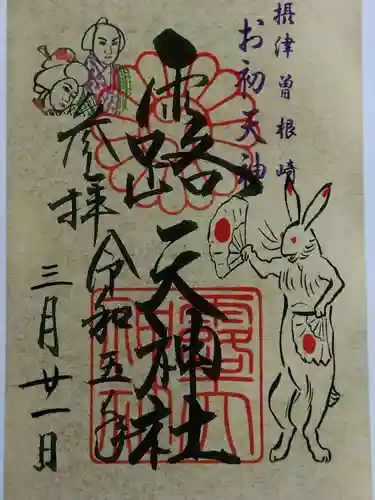 摂津曽根崎
お初天神
露天神社
奉拝
令和五年
三月廿一日